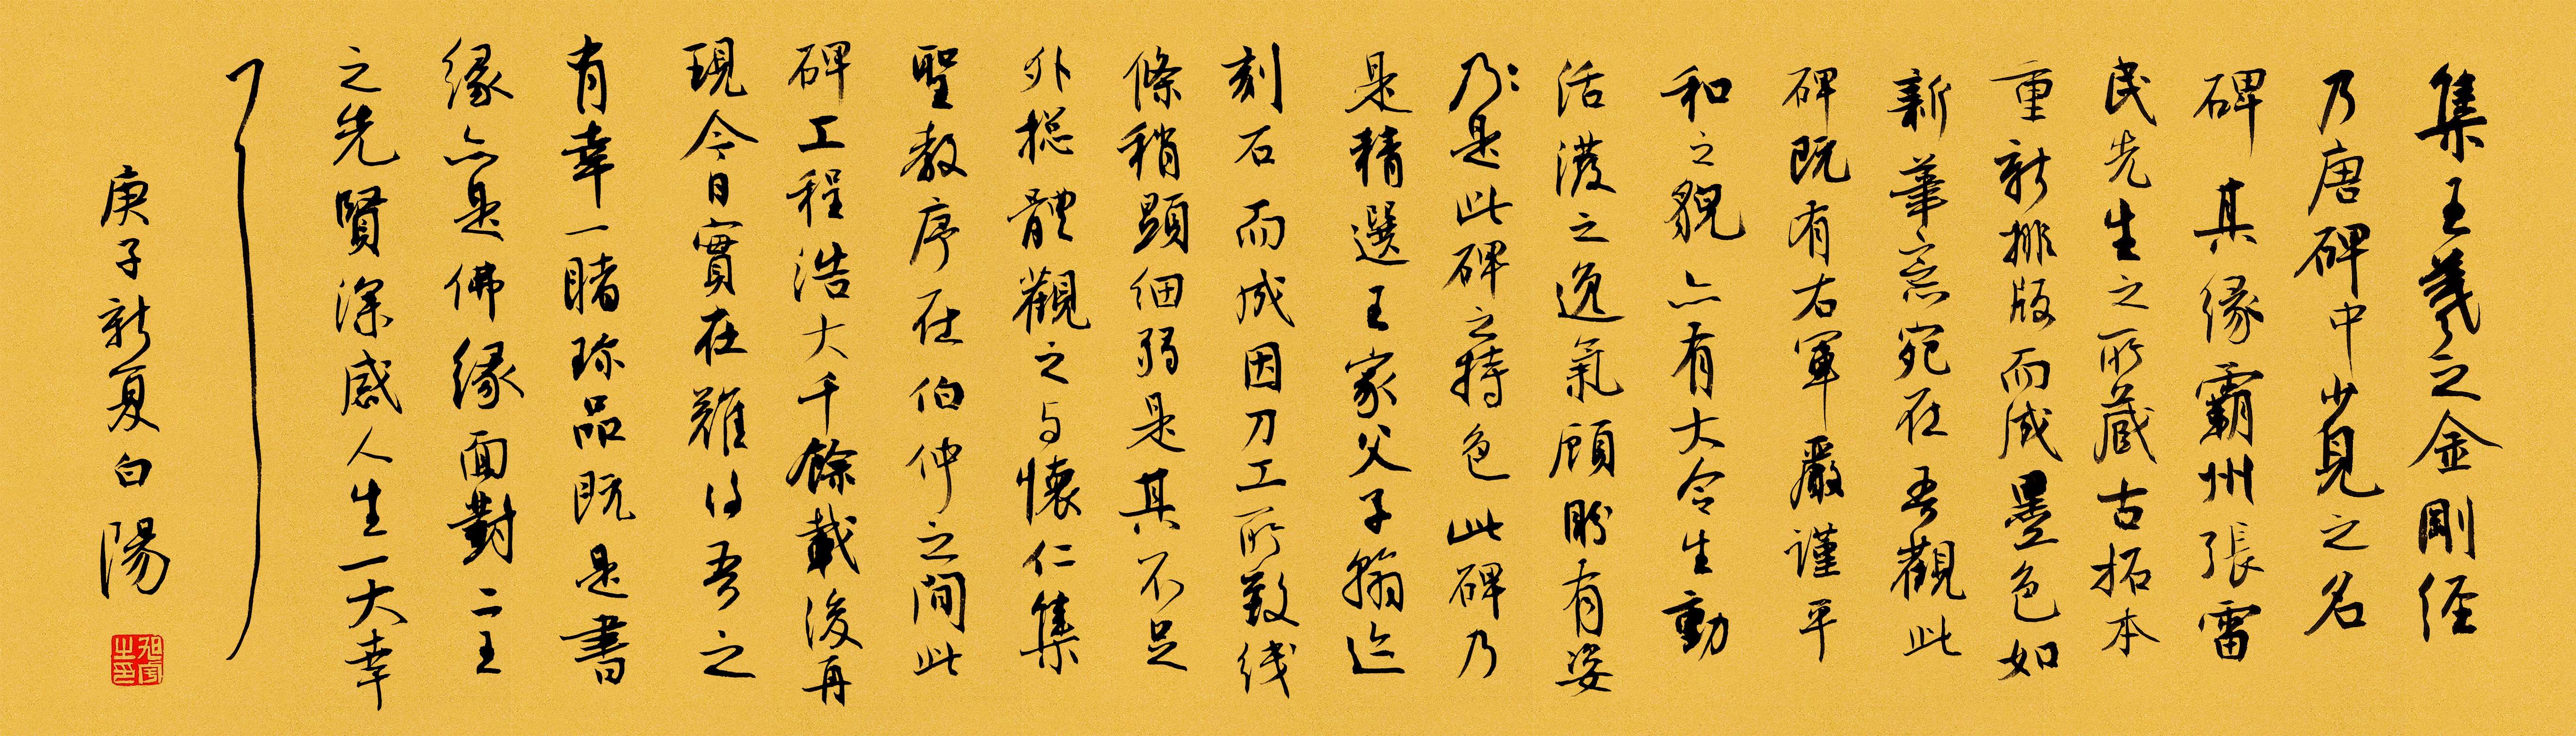 集王羲之金剛经
乃唐碑中少見之名
碑其缘霸州張雷
民先生之所藏古拓本
重新排版而成墨色如
新筆意宛在吾觀此
碑既有右軍嚴謹平
和之貌亦有大令生動
活潑之逸氣顧盼有姿
乃是此碑之特色此碑乃
是精選王家父子翰迹
刻石而成因刀工所致线
條稍顯细弱是其不足
外揔體觀之与懐仁集
聖教序在伯仲之間此
碑工程浩大千餘載後再
現今日實在難得吾之
有幸一睹珎品既是書
缘亦是佛缘面對二王
之先賢深感人生一大幸
了
庚子新夏白陽